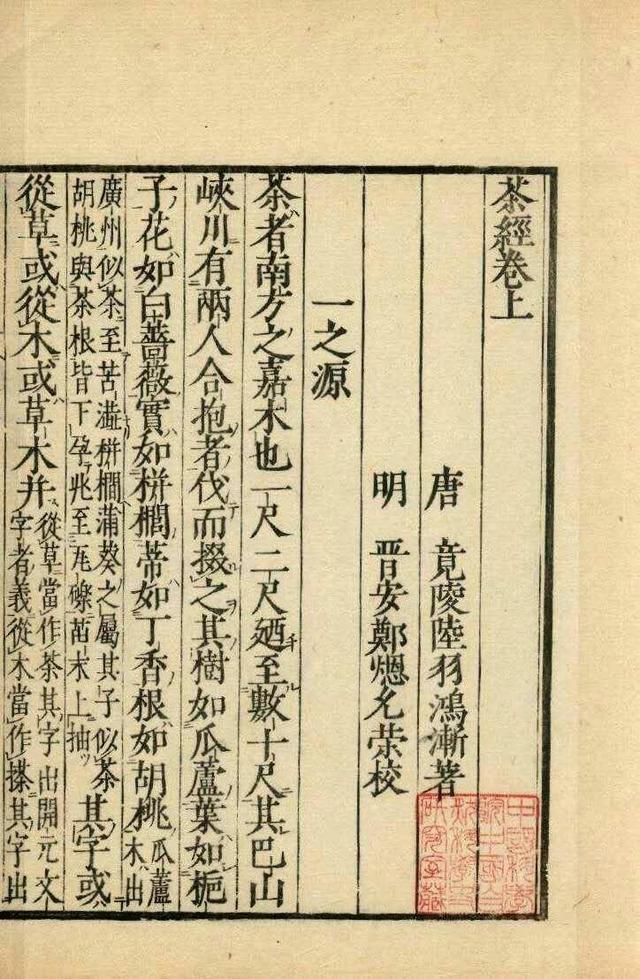 茶經卷上
唐 竟陵陸羽鴻漸著
明 晋安鄭熜允榮校
一之源
茶者南方之嘉木也一尺二尺廼至數十尺其巴山
峽川有兩人合抱者伐而掇之其樹如瓜蘆葉如梔
子花如白薔薇實如栟櫚蒂如丁香根如胡桃瓜蘆木出
廣州似茶至苦澁栟櫚蒲葵之屬其子似茶
胡桃與茶根皆下孕兆至瓦礫苗木上抽
其字或
從草或從木或草木并
從草當作茶其字出開元文
字者義從木當作搽其字出
中國科學
院中國自
然科學史
研究室藏